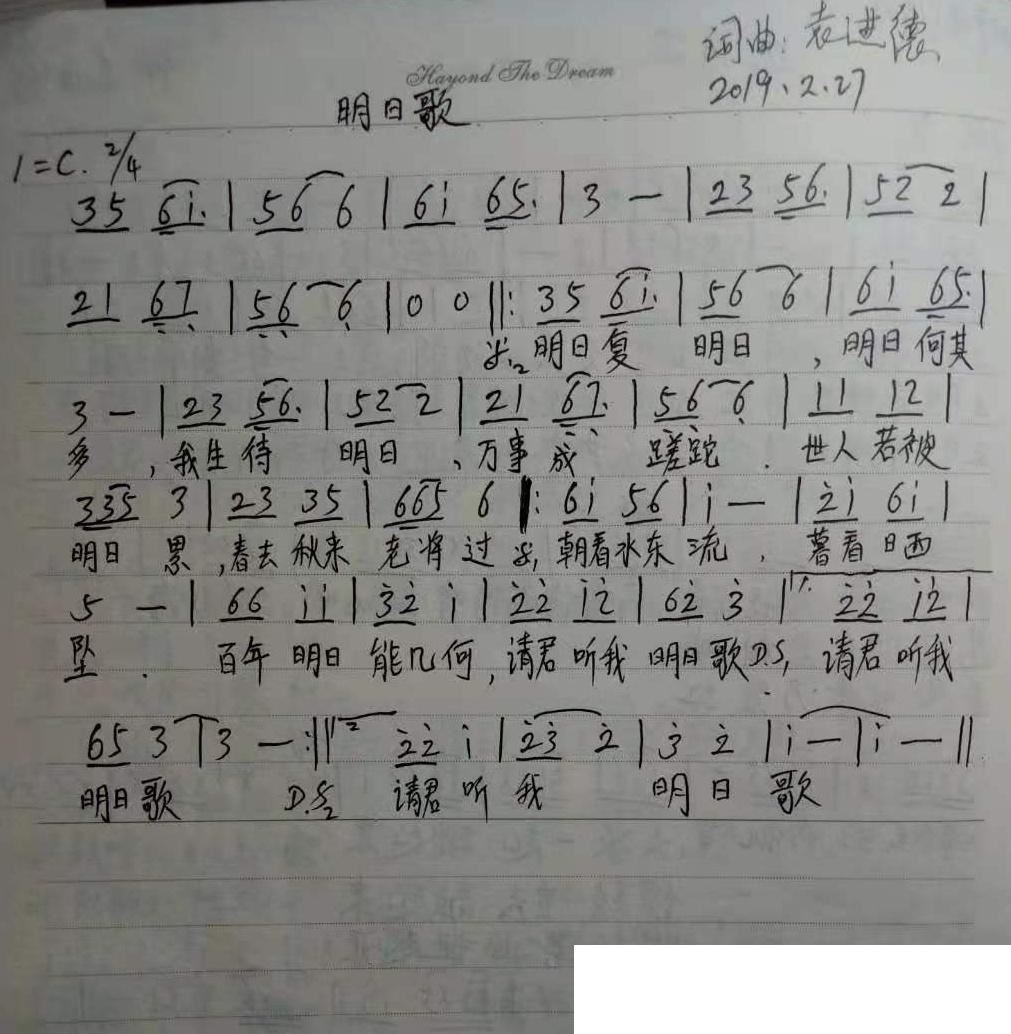 词曲：袁进德
Hayond The Dream
2019、2.27
明日歌
1=C. 2/4
35 6i. | 56 6 | 6i 65. | 3 — | 23 56. | 52 2 |
21 67 | 56 6 | 0 0 ‖: 35 6i. | 56 6 | 6i 65. |
明日复 明日 ，明日何其
3 — | 23 56. | 52 2 | 21 67. | 56 6 | i i i2 |
多 ，我生待 明日 、万事成 蹉跎 . 世人若被
335 3 | 23 35 | 665 6 |: 6i 56 | i — | 2i 6i |
明日 累 ,春去秋来 老将过 朝看水东流 . 暮看日西
5 — | 66 i i | 32 i | 22 i2 | 62 3 | 1. 22 i2 |
坠 . 百年 明日 能几何,请君听我 明日歌D.S, 请君听我
65 3 | 3 — :‖ 2 22 i | 23 2 | 3 2 | i — | i — ‖
明日歌 D.S2 请君听我 明日歌